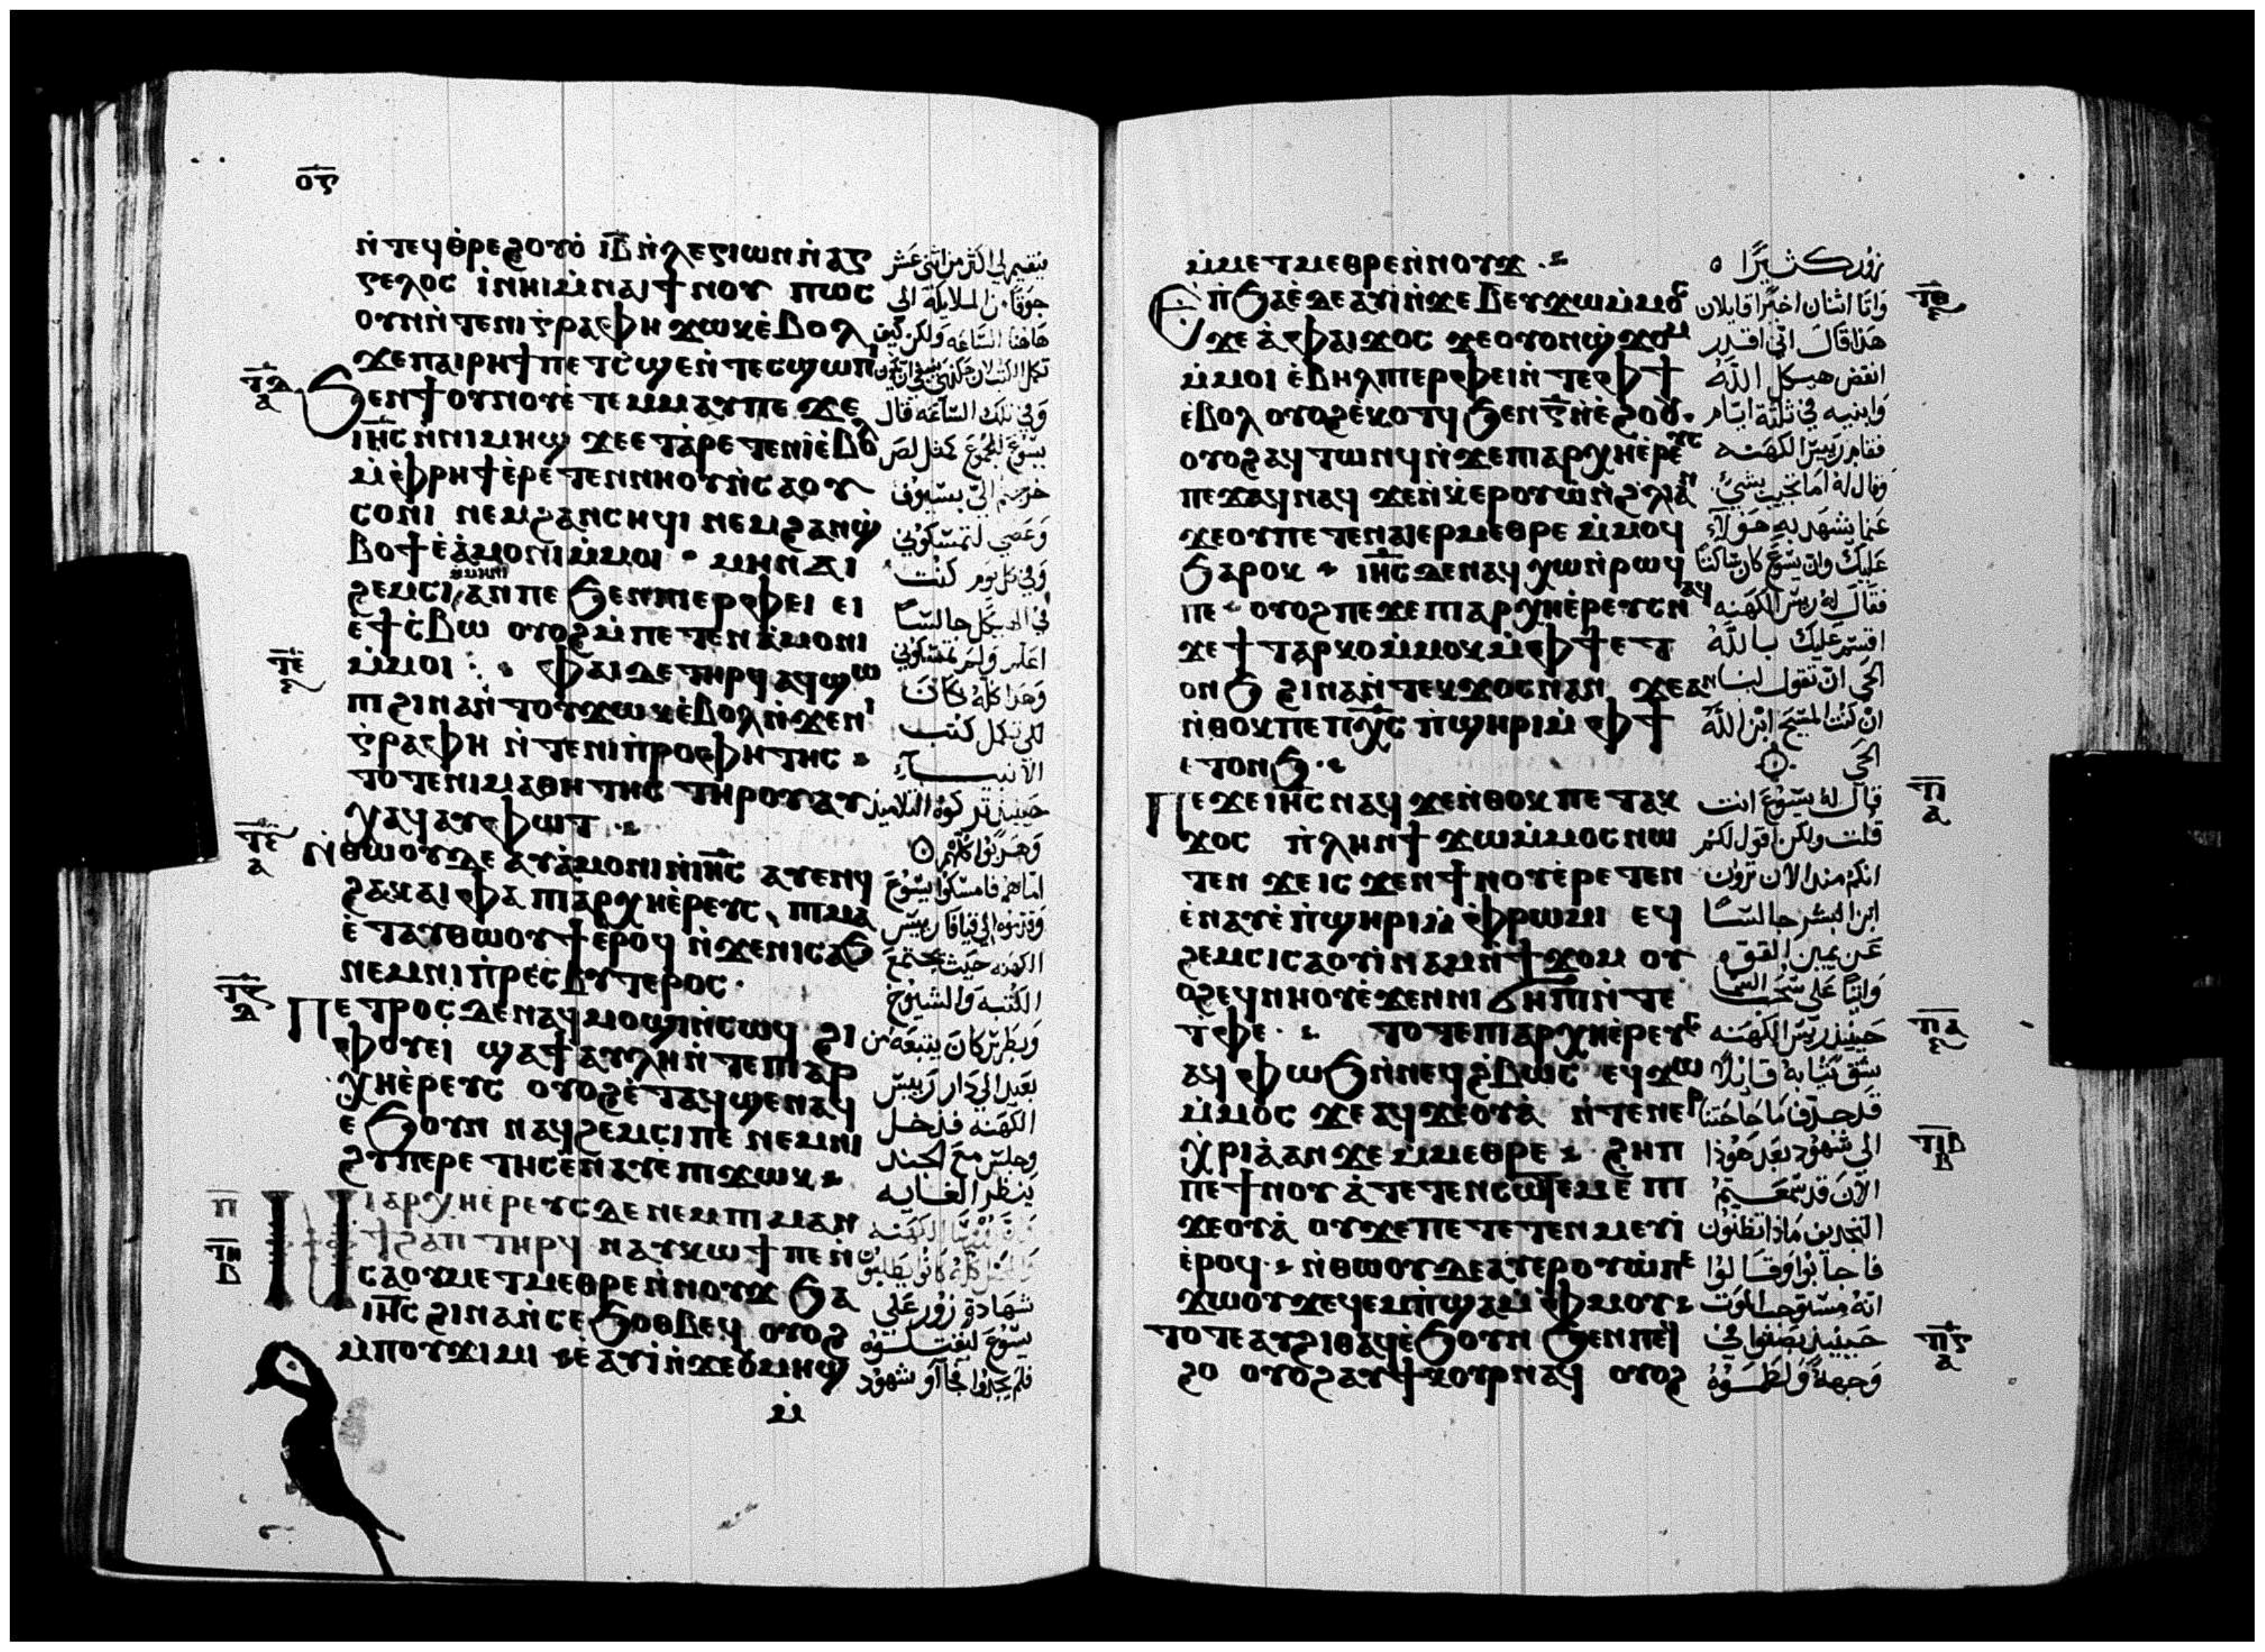 ⲟⲋ
ⲛ̀ⲧⲉϥⲑⲣⲉϩⲟⲩⲟ̀ ⲓ̅ⲃ̅ ⲛ̀ⲗⲉⲅⲓⲱⲛ ⲛ̀ⲁⲅ
ⲅⲉⲗⲟⲥ ⲓ̀ⲛⲏⲓ ⲙ̀ⲛⲁⲓ ϯⲛⲟⲩ ⲡⲱⲥ
ⲟⲩⲛ ⲛ̀ⲧⲉⲛⲓⲅ̀ⲣⲁⲫⲏ ϫⲱⲕ ⲉ̀ⲃⲟⲗ
ϫⲉ ⲡⲁⲓⲣⲏϯ ⲡⲉⲧⲥ̀ϣⲉ ⲛ̀ⲧⲉⲥϣⲱⲡⲓ
ϧⲉⲛ ϯⲟⲩⲛⲟⲩ ⲉ̀ⲧⲉⲙⲙⲁⲩ ⲡⲉϫⲉ
ⲓⲏ̅ⲥ ⲛ̀ⲛⲓⲙⲏϣ ϫⲉ ⲉⲧⲁ̀ⲣⲉⲧⲉⲛⲓ̀ ⲉ̀ⲃⲟⲗ
ⲙ̀ⲫⲣⲏϯ ⲉ̀ⲣⲉⲧⲉⲛⲛⲏⲟⲩ ⲛ̀ⲥⲁ ⲟⲩ
ⲥⲟⲛⲓ ⲛⲉⲙ ϩⲁⲛⲥⲏϥⲓ ⲛⲉⲙ ϩⲁⲛϣ̀
ⲃⲟϯ ⲉ̀ⲁ̀ⲙⲟⲛⲓ ⲙ̀ⲙⲟⲓ · ⲙⲏ ⲛⲁⲓ
ϩⲉⲙⲥⲓ ⲙ̀ⲙⲏⲛⲓ ⲁⲛ ⲡⲉ ϧⲉⲛ ⲡⲓⲉⲣⲫⲉⲓ ⲉⲓ
ⲉϯⲥ̀ⲃⲱ ⲟⲩⲟϩ ⲙ̀ⲡⲉⲧⲉⲛⲁ̀ⲙⲟⲛⲓ
ⲙ̀ⲙⲟⲓ ⲫⲁⲓ ⲇⲉ ⲧⲏⲣϥ ⲁϥϣⲱ
ⲡⲓ ϩⲓⲛⲁ ⲛ̀ⲧⲟⲩϫⲱⲕ ⲉ̀ⲃⲟⲗ ⲛ̀ϫⲉ ⲛⲓ
ⲅ̀ⲣⲁⲫⲏ ⲛ̀ⲧⲉ ⲛⲓⲡ̀ⲣⲟⲫⲏⲧⲏⲥ
ⲧⲟⲧⲉ ⲛⲓⲙⲁⲑⲏⲧⲏⲥ ⲧⲏⲣⲟⲩ ⲁⲩ
ⲭⲁϥ ⲁⲩⲫⲱⲧ
ⲛ̀ⲑⲱⲟⲩ ⲇⲉ ⲁⲩⲁ̀ⲙⲟⲛⲓ ⲛ̀ⲓⲏ̅ⲥ ⲁⲩⲉⲛϥ
ϩⲁ ⲕⲁⲓⲫⲁ ⲡⲓⲁⲣⲭⲏⲉ̀ⲣⲉⲩⲥ ⲡⲓⲙⲁ
ⲉ̀ⲧⲁⲩⲑⲱⲟⲩϯ ⲉⲣⲟϥ ⲛ̀ϫⲉ ⲛⲓⲥⲁϧ
ⲛⲉⲙ ⲛⲓⲡ̀ⲣⲉⲥⲃⲩⲧⲉⲣⲟⲥ
ⲡⲉⲧⲣⲟⲥ ⲇⲉ ⲛⲁϥⲙⲟϣⲓ ⲛ̀ⲥⲱϥ ϩⲓ
ⲫⲟⲩⲉⲓ ϣⲁ ϯⲁⲩⲗⲏ ⲛ̀ⲧⲉ ⲡⲓⲁⲣ
ⲭⲏⲉ̀ⲣⲉⲩⲥ ⲟⲩⲟϩ ⲉ̀ⲧⲁϥϣⲉⲛⲁϥ
ⲉϧⲟⲩⲛ ⲛⲁϥϩⲉⲙⲥⲓ ⲡⲉ ⲛⲉⲙ ⲛⲓ
ϩⲩⲡⲉⲣⲉⲧⲏⲥ ⲉ̀ⲛⲁⲩ ⲉ̀ ⲡⲓϫⲱⲕ
ⲡⲓⲁⲣⲭⲏⲉ̀ⲣⲉⲩⲥ ⲇⲉ ⲛⲉⲙ ⲡⲓⲙⲁⲛ
ϯϩⲁⲡ ⲧⲏⲣϥ ⲛⲁⲩⲕⲱϯ ⲡⲉ ⲛ̀
ⲥⲁ ⲟⲩⲙⲉⲧⲙⲉⲑⲣⲉ ⲛ̀ⲛⲟⲩϫ ϧⲁ
ⲓⲏ̅ⲥ ϩⲓⲛⲁ ⲛ̀ⲥⲉϧⲟⲑⲃⲉϥ ⲟⲩⲟϩ
ⲙ̀ⲡⲟⲩϫⲓⲙⲓ ⲉ̀ⲁⲩⲓ̀ ⲛ̀ϫⲉ ⲟⲩⲙⲏϣ
ⲙ̀
جوقا من الملايكة الى
هاهنا الساعه ولكن كيف
وفي تلك الساعه قال
يسوع للجموع كمثل لص
خرجتم الي بسيوف
وعصي لتمسكوني
وفي كل يوم كنت
في الهيكل جالسا
اعلم ولم تمسكوني
وهذا كله كان
لكي تكمل كتب
الانبيــاء
حينيذ تركوه التلاميذ
وهربوا كلهم
اما هم فامسكوا يسوع
وقدموه الى قيافا رييس
الكهنه حيث يجتمع
الكتبه والشيوخ
وبطرس كان يتبعه من
بعيد الى دار رييس
الكهنه فدخل
وجلس مع الجند
ينظر الغايه
شهادة زور على
يسوع ليقتــلوه
فلم يجدوا فجااو شهود
ⲙ̀ⲙⲉⲧⲙⲉⲑⲣⲉ ⲛ̀ⲛⲟⲩϫ
ⲉⲡ̀ϧⲁⲉ̀ ⲇⲉ ⲁⲩⲓ̀ ⲛ̀ϫⲉ ⲃ ⲉⲩϫⲱ ⲙ̀ⲙⲟⲥ
ϫⲉ ⲁ̀ ⲫⲁⲓ ϫⲟⲥ ϫⲉ ⲟⲩⲟⲛϣ̀ϫⲟⲙ
ⲙ̀ⲙⲟⲓ ⲉ̀ⲃⲏⲗ ⲡⲓⲉⲣⲫⲉⲓ ⲛ̀ⲧⲉ ⲫϯ
ⲉ̀ⲃⲟⲗ ⲟⲩⲟϩ ⲉ̀ⲕⲟⲧϥ ϧⲉⲛ ⲅ̅ ⲛ̀ⲉ̀ϩⲟⲟⲩ
ⲟⲩⲟϩ ⲁϥⲧⲱⲛϥ ⲛ̀ϫⲉ ⲡⲓⲁⲣⲭⲏⲉ̀ⲣⲉⲩⲥ
ⲡⲉϫⲁϥ ⲛⲁϥ ϫⲉ ⲛ̀ⲕ̀ⲉⲣⲟⲩⲱ̀ ⲛ̀ϩ̀ⲗⲓ ⲁⲛ
ϫⲉ ⲟⲩ ⲡⲉⲧⲉⲛⲁⲓ ⲉⲣⲙⲉⲑⲣⲉ ⲙ̀ⲙⲟϥ
ϧⲁⲣⲟⲕ ⲓⲏ̅ⲥ ⲇⲉ ⲛⲁϥⲭⲱ ⲛ̀ⲣⲱϥ
ⲡⲉ ⲟⲩⲟϩ ⲡⲉϫⲉ ⲡⲓⲁⲣⲭⲏⲉ̀ⲣⲉⲩⲥ ⲛⲁϥ
ϫⲉ ϯⲧⲁⲣⲕⲟ ⲙ̀ⲙⲟⲕ ⲙ̀ⲫϯ ⲉⲧ
ⲟⲛϧ ϩⲓⲛⲁ ⲛ̀ⲧⲉⲕϫⲟⲥ ⲛⲁⲛ ϫⲉ ⲁⲛ
ⲛ̀ⲑⲟⲕ ⲡⲉ ⲡⲭ̅ⲥ ⲡ̀ϣⲏⲣⲓ ⲙ̀ⲫϯ
ⲉⲧⲟⲛϧ
ⲡⲉϫⲉ ⲓⲏ̅ⲥ ⲛⲁϥ ϫⲉ ⲛ̀ⲑⲟⲕ ⲡⲉⲧⲁⲕ
ϫⲟⲥ ⲡ̀ⲗⲏⲛ ϯϫⲱ ⲙ̀ⲙⲟⲥ ⲛⲱ
ⲧⲉⲛ ϫⲉ ⲓⲥϫⲉⲛ ϯⲛⲟⲩ ⲉ̀ⲣⲉⲧⲉⲛ
ⲉ̀ⲛⲁⲩ ⲉ̀ ⲡ̀ϣⲏⲣⲓ ⲙ̀ⲫⲣⲱⲙⲓ ⲉϥ
ϩⲉⲙⲥⲓ ⲥⲁⲟⲩⲓ̀ⲛⲁⲙ ⲛ̀ϯϫⲟⲙ ⲟⲩ
ⲟϩ ⲉϥⲛⲏⲟⲩ ⲉ̀ϫⲉⲛ ⲛⲓϭⲏⲡⲓ ⲛ̀ⲧⲉ
ⲧ̀ⲫⲉ ⲧⲟⲧⲉ ⲡⲓⲁⲣⲭⲏⲉ̀ⲣⲉⲩⲥ
ⲁϥⲫⲱϧ ⲛ̀ⲛⲉϥϩ̀ⲃⲱⲥ ⲉϥϫⲱ
ⲙ̀ⲙⲟⲥ ϫⲉ ⲁϥϫⲉⲟⲩⲁ̀ ⲛ̀ⲧⲉⲛⲉⲣ
ⲭ̀ⲣⲓⲁ̀ ⲁⲛ ϫⲉ ⲙ̀ⲙⲉⲑⲣⲉ ϩⲏⲡ
ⲡⲉ ϯⲛⲟⲩ ⲁ̀ⲧⲉⲧⲉⲛⲥⲱⲧⲉⲙ ⲉ̀ ⲡⲓ
ϫⲉⲟⲩⲁ̀ ⲟⲩ ϫⲉ ⲡⲉⲧⲉⲧⲉⲛⲙⲉⲩⲓ̀
ⲉ̀ⲣⲟϥ ⲛ̀ⲑⲱⲟⲩ ⲇⲉ ⲁⲩⲉⲣⲟⲩⲱ̀ ⲡⲉ
ϫⲱⲟⲩ ϫⲉ ϥⲉⲙⲡ̀ϣⲁ ⲙ̀ⲫⲙⲟⲩ
ⲧⲟⲧⲉ ⲁⲩϩⲓⲑⲁϥ ⲉ̀ϧⲟⲩⲛ ϧⲉⲛ ⲡⲉϥ
ϩⲟ ⲟⲩⲟϩ ⲁⲩϯⲕⲟⲩⲣ ⲛⲁϥ ⲟⲩⲟϩ
زور كثيرًا
واتا اثنان اخيرا قايلان
هذا قال اني اقدر
انقض هيكل الله
وابنيه في ثلثة ايام
فقام رييس الكهنــه
وقال له اما تجيب بشي
عما يشهد به هولاء
عليك وان يسوع كان ساكتا
فقال له رييس الكهنه
اقسم عليك بالله
الحي ان تقول لنــا
ان كنت المسيح ابن الله
الحي
قال له يسوع انت
قلت ولكن اقول لكم
انكم منذ الان ترون
ابن البشر جالسا
عن يمين القوه
واتيا على سحب السما
حينيذ رييس الكهنه
شق ثيابه قــايلا
قد جدف ما حاجتنا
الى شهود بعد هوذا
الان قد سمعــتم
التجديف ماذا تظنون
فاجابوا وقــالوا
انه مستوجب الموت
حينيذ بصقوا في
وجهه ولطمــوه